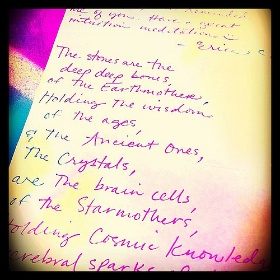 me of you. Have a great
intuition meditation
- Erica
The stones are the
deep deep bones,
of the Earthmothers,
Holding the wisdom
of the ages,
of the Ancient Ones,
The Crystals,
are The brain cells
of the Starmothers,
Holding Cosmic Knowled
cerebral sparks